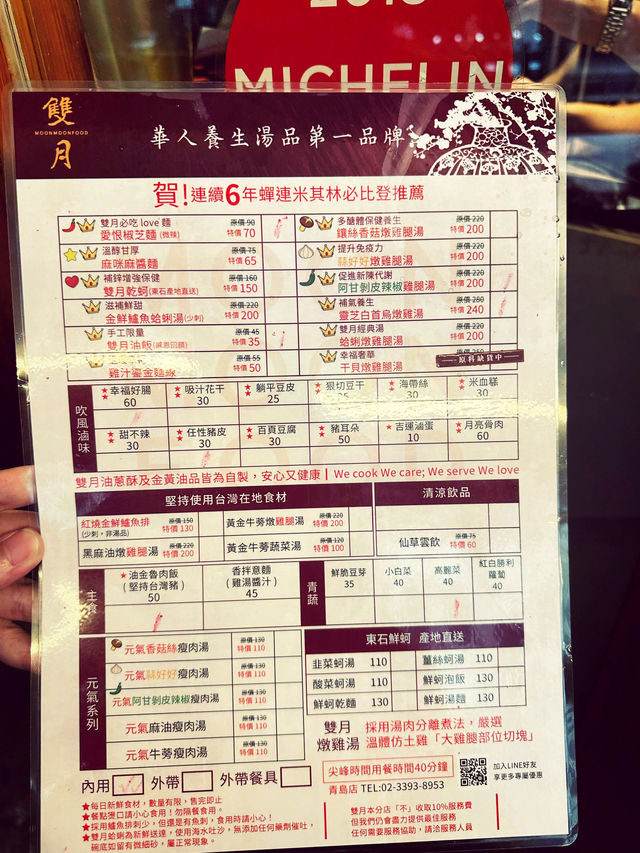 MICHELIN
雙月
MOONMOONFOOD
華人養生湯品第一品牌
賀!連續6年蟬連米其林必比登推薦
雙月必吃 love 麵 原價 90
愛恨椒芝麵 (微辣) 特價 70
溫醇甘厚 原價 75
麻咪麻醬麵 特價 65
補鋅增強保健 原價 160
雙月乾蚵(東石產地直送) 特價 150
滋補鮮甜 原價 220
金鮮鱸魚蛤蜊湯(少刺) 特價 200
手工限量 原價 45
雙月油飯(感恩回饋) 特價 35
原價 55
雞汁鎏金麵線 特價 50
多醣體保健養生 原價 220
鑲絲香菇燉雞腿湯 特價 200
提升免疫力 原價 220
蒜好好燉雞腿湯 特價 200
促進新陳代謝 原價 220
阿甘剝皮辣椒雞腿湯 特價 200
補氣養生 原價 280
靈芝白首烏燉雞湯 特價 240
雙月經典湯 原價 220
蛤蜊燉雞腿湯 特價 200
幸福奢華
干貝燉雞腿湯
原料缺貨中
吹風滷味
★幸福好腸 60
★吸汁花干 30
★躺平豆皮 25
★狠切豆干
★海帶絲 30
★米血糕 30
★甜不辣 30
★任性豬皮 30
★百頁豆腐 30
★豬耳朵 50
★吉運滷蛋 10
★月亮骨肉 60
雙月油蔥酥及金黃油品皆為自製,安心又健康 | We cook We care; We serve We love
堅持使用台灣在地食材
紅燒金鮮鱸魚排 原價 150
(少刺,非湯品) 特價 130
黑麻油燉雞腿湯 原價 220 特價 200
黃金牛蒡燉雞腿湯 原價 220 特價 200
黃金牛蒡蔬菜湯 原價 120 特價 100
清涼飲品
仙草雲飲 原價 75 特價 60
主食
★油金魯肉飯
(堅持台灣豬)
50
香拌意麵
(雞湯醬汁)
45
青蔬
鮮脆豆芽 35
小白菜 40
高麗菜 40
紅白勝利蘿蔔 40
元氣系列
元氣香菇絲瘦肉湯 原價 130 特價 110
元氣蒜好好瘦肉湯 原價 130 特價 110
元氣阿甘剝皮辣椒瘦肉湯 原價 130 特價 110
元氣麻油瘦肉湯 原價 130 特價 110
元氣牛蒡瘦肉湯 原價 130 特價 110
東石鮮蚵 產地直送
韭菜蚵湯 110
薑絲蚵湯 110
酸菜蚵湯 110
鮮蚵泡飯 130
鮮蚵乾麵 130
鮮蚵湯麵 130
雙月燉雞湯 採用湯肉分離煮法,嚴選
溫體仿土雞「大雞腿部位切塊」
內用 外帶 外帶餐具
尖峰時間用餐時間40分鐘
青島店 TEL: 02-3393-8953
加入LINE好友
享更多專屬優惠
★每日新鮮食材,數量有限,售完即止
★餐點燙口請小心食用!勿隔餐食用。
★採用鱸魚排刺少,但還是有魚刺,食用時請小心!
★雙月蛤蜊為新鮮送達,使用海水吐沙,無添加任何藥劑催吐,
碗底如留有微細砂,屬正常現象。
雙月本分店「不」收取10%服務費
但我們仍會盡力提供最佳服務
任何需要服務協助,請洽服務人員